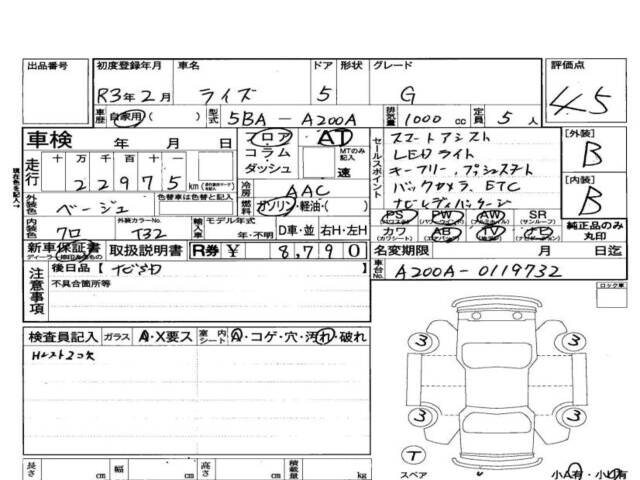 出品番号 初度登録年月 車名 ドア 形状 グレード 評価点
R3年2月 ライズ 5 G 4.5
車歴 自家用( ) 型式 5BA-A200A 排気量 1000cc 定員 5人
車検 年 月 日 フロア AT スマートアシスト [外装]
コラム MTのみ記入 LEDライト B
走行 十 万 千 百 十 ダッシュ 速 セールスポイント キーフリー、プッシュスタート
22975km 冷房 AAC バックカメラ、ETC [内装]
外装色 ベージュ 色替車は色替と記入 燃料 ガソリン・軽油・( ) B
PS PW AW SR
(パワステ) (パワーウィンドウ) (サンルーフ)
内装色 クロ 外装カラーNo. T32 輸入車 モデル年式 年・不明 D車・並 右H・左H カワ AB TV 純正品のみ丸印
(カワシート) (エアバッグ)
新車保証書 取扱説明書 R券 ¥ 8,790 名変期限 月 日迄
車台No. A200A-0119732
注意事項 後日品【ナビSD
不具合箇所等
現在色を記入→
ロック車
検査員記入 ガラス A・X要ス 室内シート A・コゲ・穴・汚れ・破れ
Hレスト2コ欠
3 3
3 3
T
スペア 小A有・小U有
長さ cm 幅 cm 高さ cm 積載量 kg